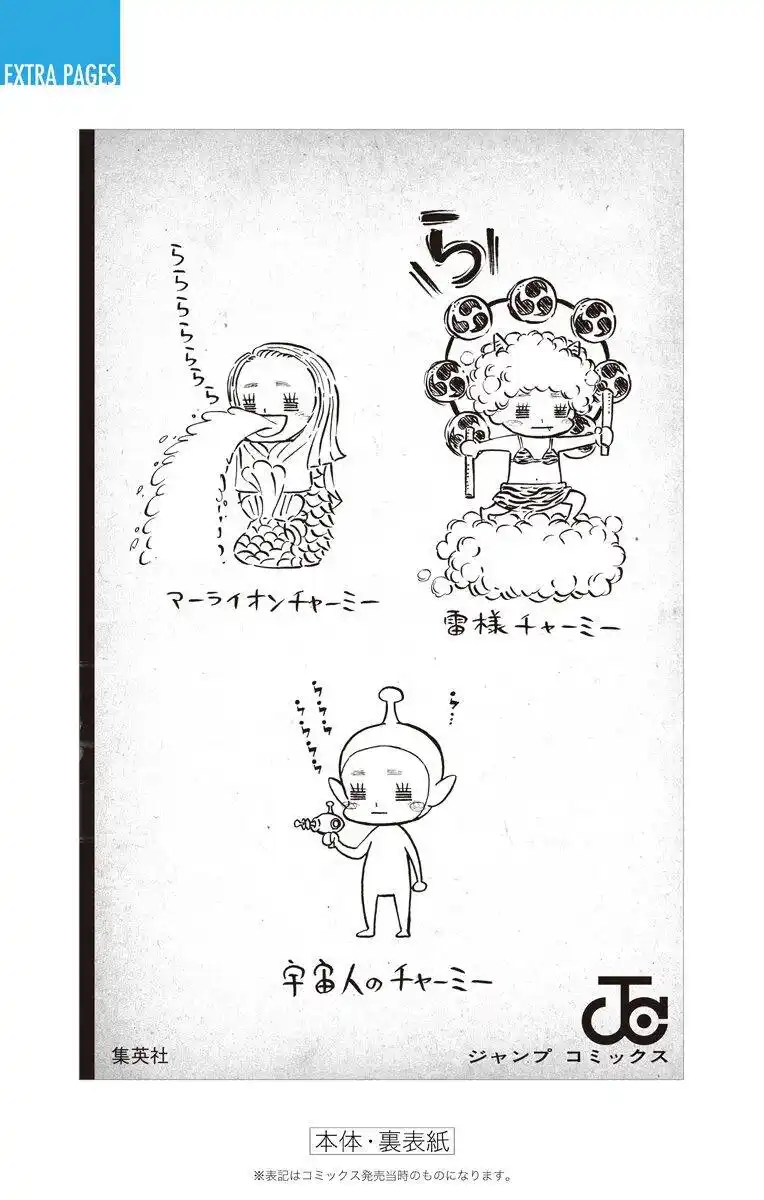 EXTRA PAGES
ら
ららららららら
マーライオンチャーミー
雷様チャーミー
ららら
ららららら
ら…
宇宙人のチャーミー
集英社
ジャンプ コミックス
本体・裏表紙
※表記はコミックス発売当時のものになります。